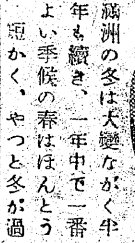 滿洲の冬は大變ながく半
年も續き、一年中で一番
よい季候の春はほんとう
短かく、やつと冬が過